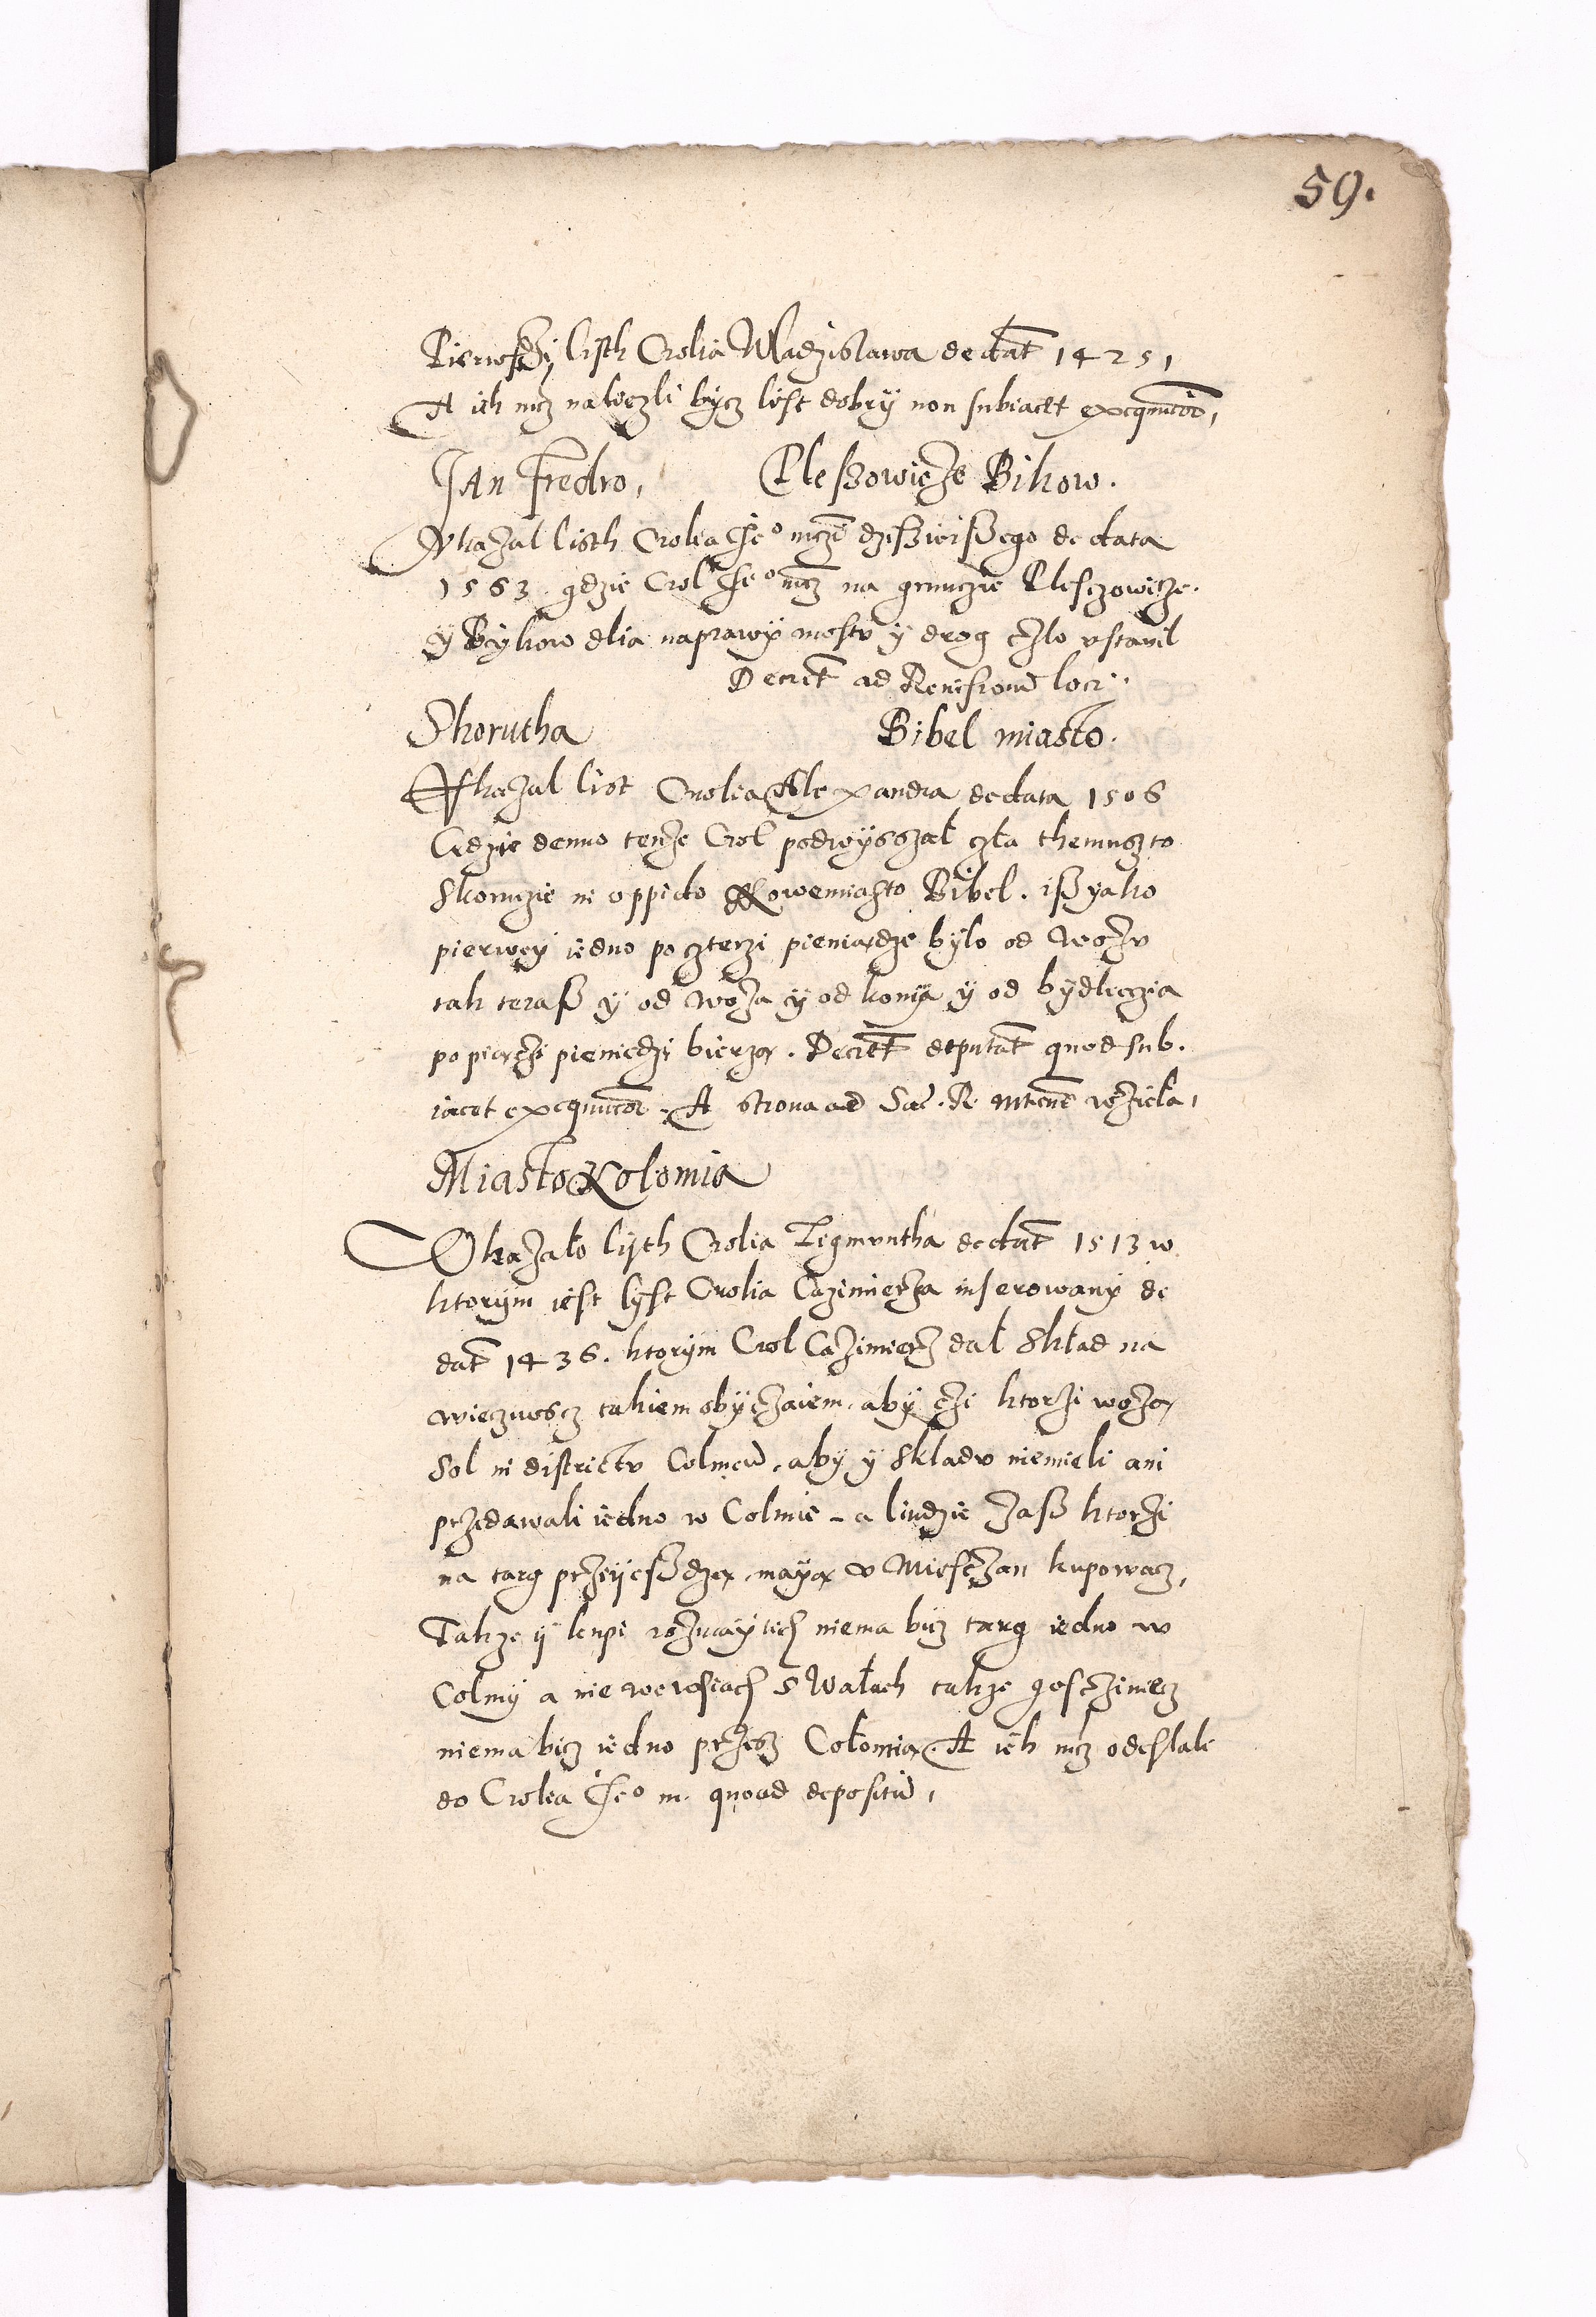 59.
Pierwsźÿ listh Crolia Wladzislawa de dat̃ 1425,
A ich mcz nalieżli bycz list dobry non subiacet exequucõĩ,
Jan Fredro, Pleszowicze Bikow.
Vkazal listh Crolia Je° mczi dzisieiszego de data
1563. gdzie Crol Je° mcz na gruncżie Plesczowicze.
ÿ Bÿkow dlia naprawÿ mostv ÿ drog czlo vstawil
Decret̃ ad Reuisionẽ loci..
Skorutha Bibel miasto.
Vkazal list Crolia Alexandra de data 1506
Gdzie denuo tenze Crol podwÿsszal czła themusz to
Skorucżie in oppido Nowemiasto Bibel. isz yako
pierwey iedno po czterzi pieniądze bylo od wozv
tak terasz ÿ od woza ÿ od konÿa ÿ od bydlecżia
po piączi pieniedzi bierzą. Decret̃ deputat̃ quod sub.
iacet exequucõi. A strona ad Sac̃. R. Mtem̃ wzieła,
Miasto Kolomia
Okazało lyst Crolia Zigmvntha de dat̃ 1513 w
ktorÿm iest lyst Crolia Cazimierza inserowanÿ de
dat̃ 1436. ktorÿm Crol Cazimierz dał Skład na
wiecznoscz takiem obÿczaiem, aby czi ktorzi wożą
Sol in districtv Colmeñ, aby ÿ Składv niemieli ani
przedawali iedno w Colmie - a liudzie zasz ktorzi
na targ prziiesżdzą maÿą v Miesczan kupowacz,
Takze ÿ kupi roznaÿtich niema bicz targ iedno w
Colmÿ a nie we wsiach s Wałach takze gosczinecz
niema bicz iedno przesz Colomią. A ich mcz odeslali
do Crolia Je° m. quoad depositũ,